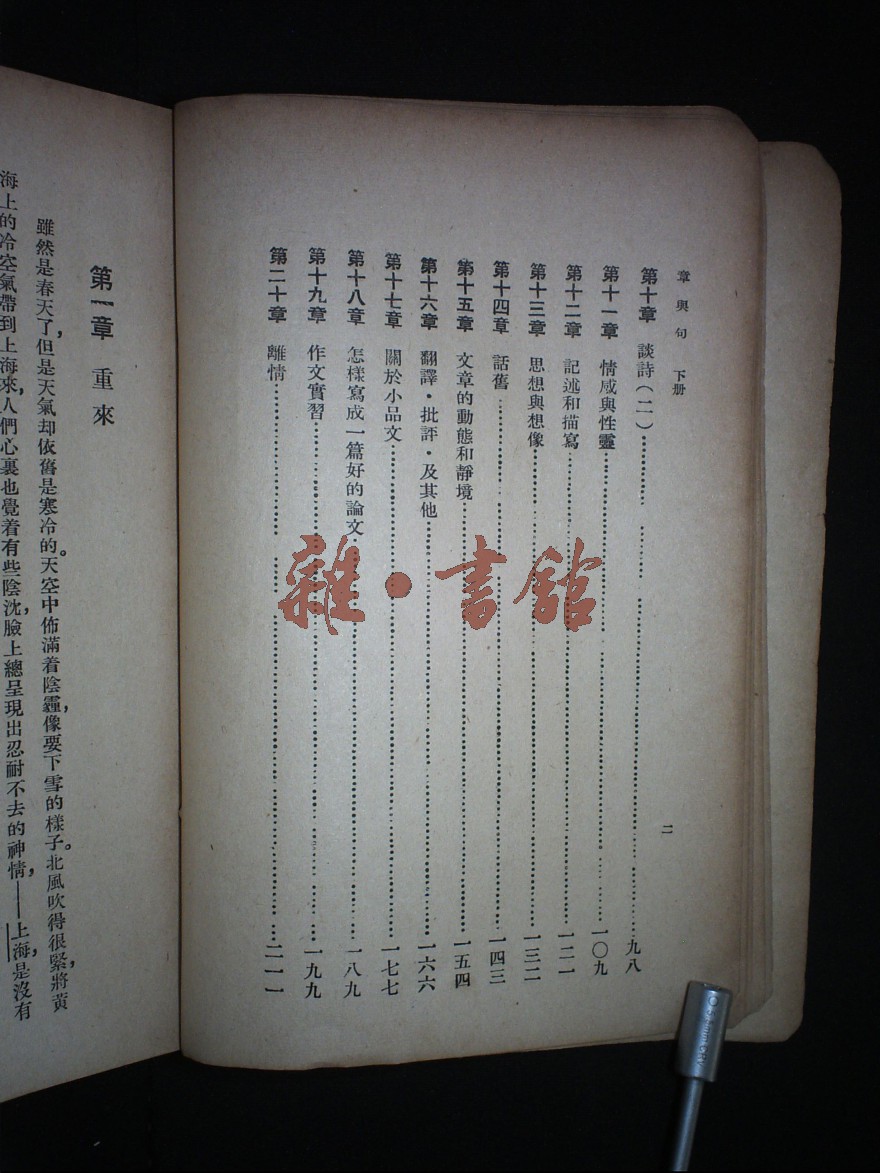 章與句 下册
第十章 談詩(二)……九八
第十一章 情感與性靈……一〇九
第十二章 記述和描寫……一二一
第十三章 思想與想像……一三二
第十四章 話舊……一四三
第十五章 文章的動態和靜境……一五四
第十六章 翻譯·批評·及其他……一六六
第十七章 關於小品文……一七七
第十八章 怎樣寫成一篇好的論文……一八九
第十九章 作文實習……一九九
第二十章 離情……二一一
二
第一章 重來
雖然是春天了,但是天氣却依舊是寒冷的。天空中佈滿着陰霾,像要下雪的樣子。北風吹得很緊,將黃
海上的冷空氣帶到上海來,人們心裏也覺着有些陰沈,臉上總呈現出忍耐不去的神情,——上海,是沒有
雜·書館